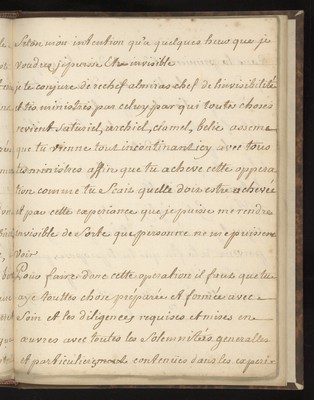 selon mon intention qu'a quelques heures que je
voudray je puisse Etre invisible
je te conjure de rechef almiras chef de linvisibileté
et tes ministres par celuy par qui toutes choses
saturiel, archiel, clamel, belie
que tu vienne tout incontinant icy avec tous
tes ministres affin que tu acheve cette oppera
tion comme tu scais quelle dois estre achevée
et par cette experiance que je puisse me rendre
invisible de sorte que personne ne me puissent
voir
Pour faire donc cette operation il faut que tu
aye toutles chose préparée et formée avec
soin et les diligences requises et mises en
œuvres avec toutes les solemnités generalles
et particulieres contenües dans les experi